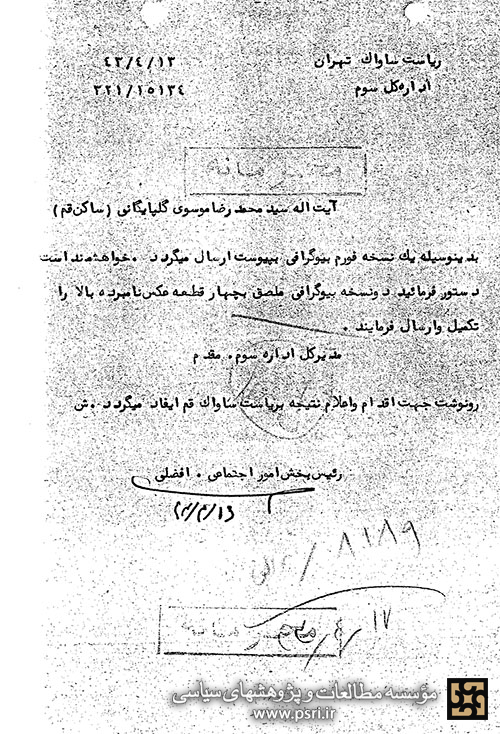 ریاست ساواک تهران
۴۳/۴/۱۳
اداره کل سوم
۳۲۱/۱۵۱۳۴
محرمانه
آیت اله سید محمد رضا موسوی گلپایگانی (ساکن قم)
بدینوسیله یک نسخه فورم بیوگرافی بپیوست ارسال میگردد . خواهشمند است
دستور فرمائید دو نسخه بیوگرافی ملصق بچهار قطعه عکس نامبرده بالا را
تکمیل وارسال فرمایند .
مدیرکل اداره سوم . مقدم
رونوشت جهت اقدام واعلام نتیجه بریاست ساواک قم ایفاد میگردد .ش
رئیس بخش امور اجتماعی . افضلی
۸۱۸۹
۱۷/۴/
محرمانه
مؤسسه مطالعات و پژوهشهای سیاسی
www.psri.ir